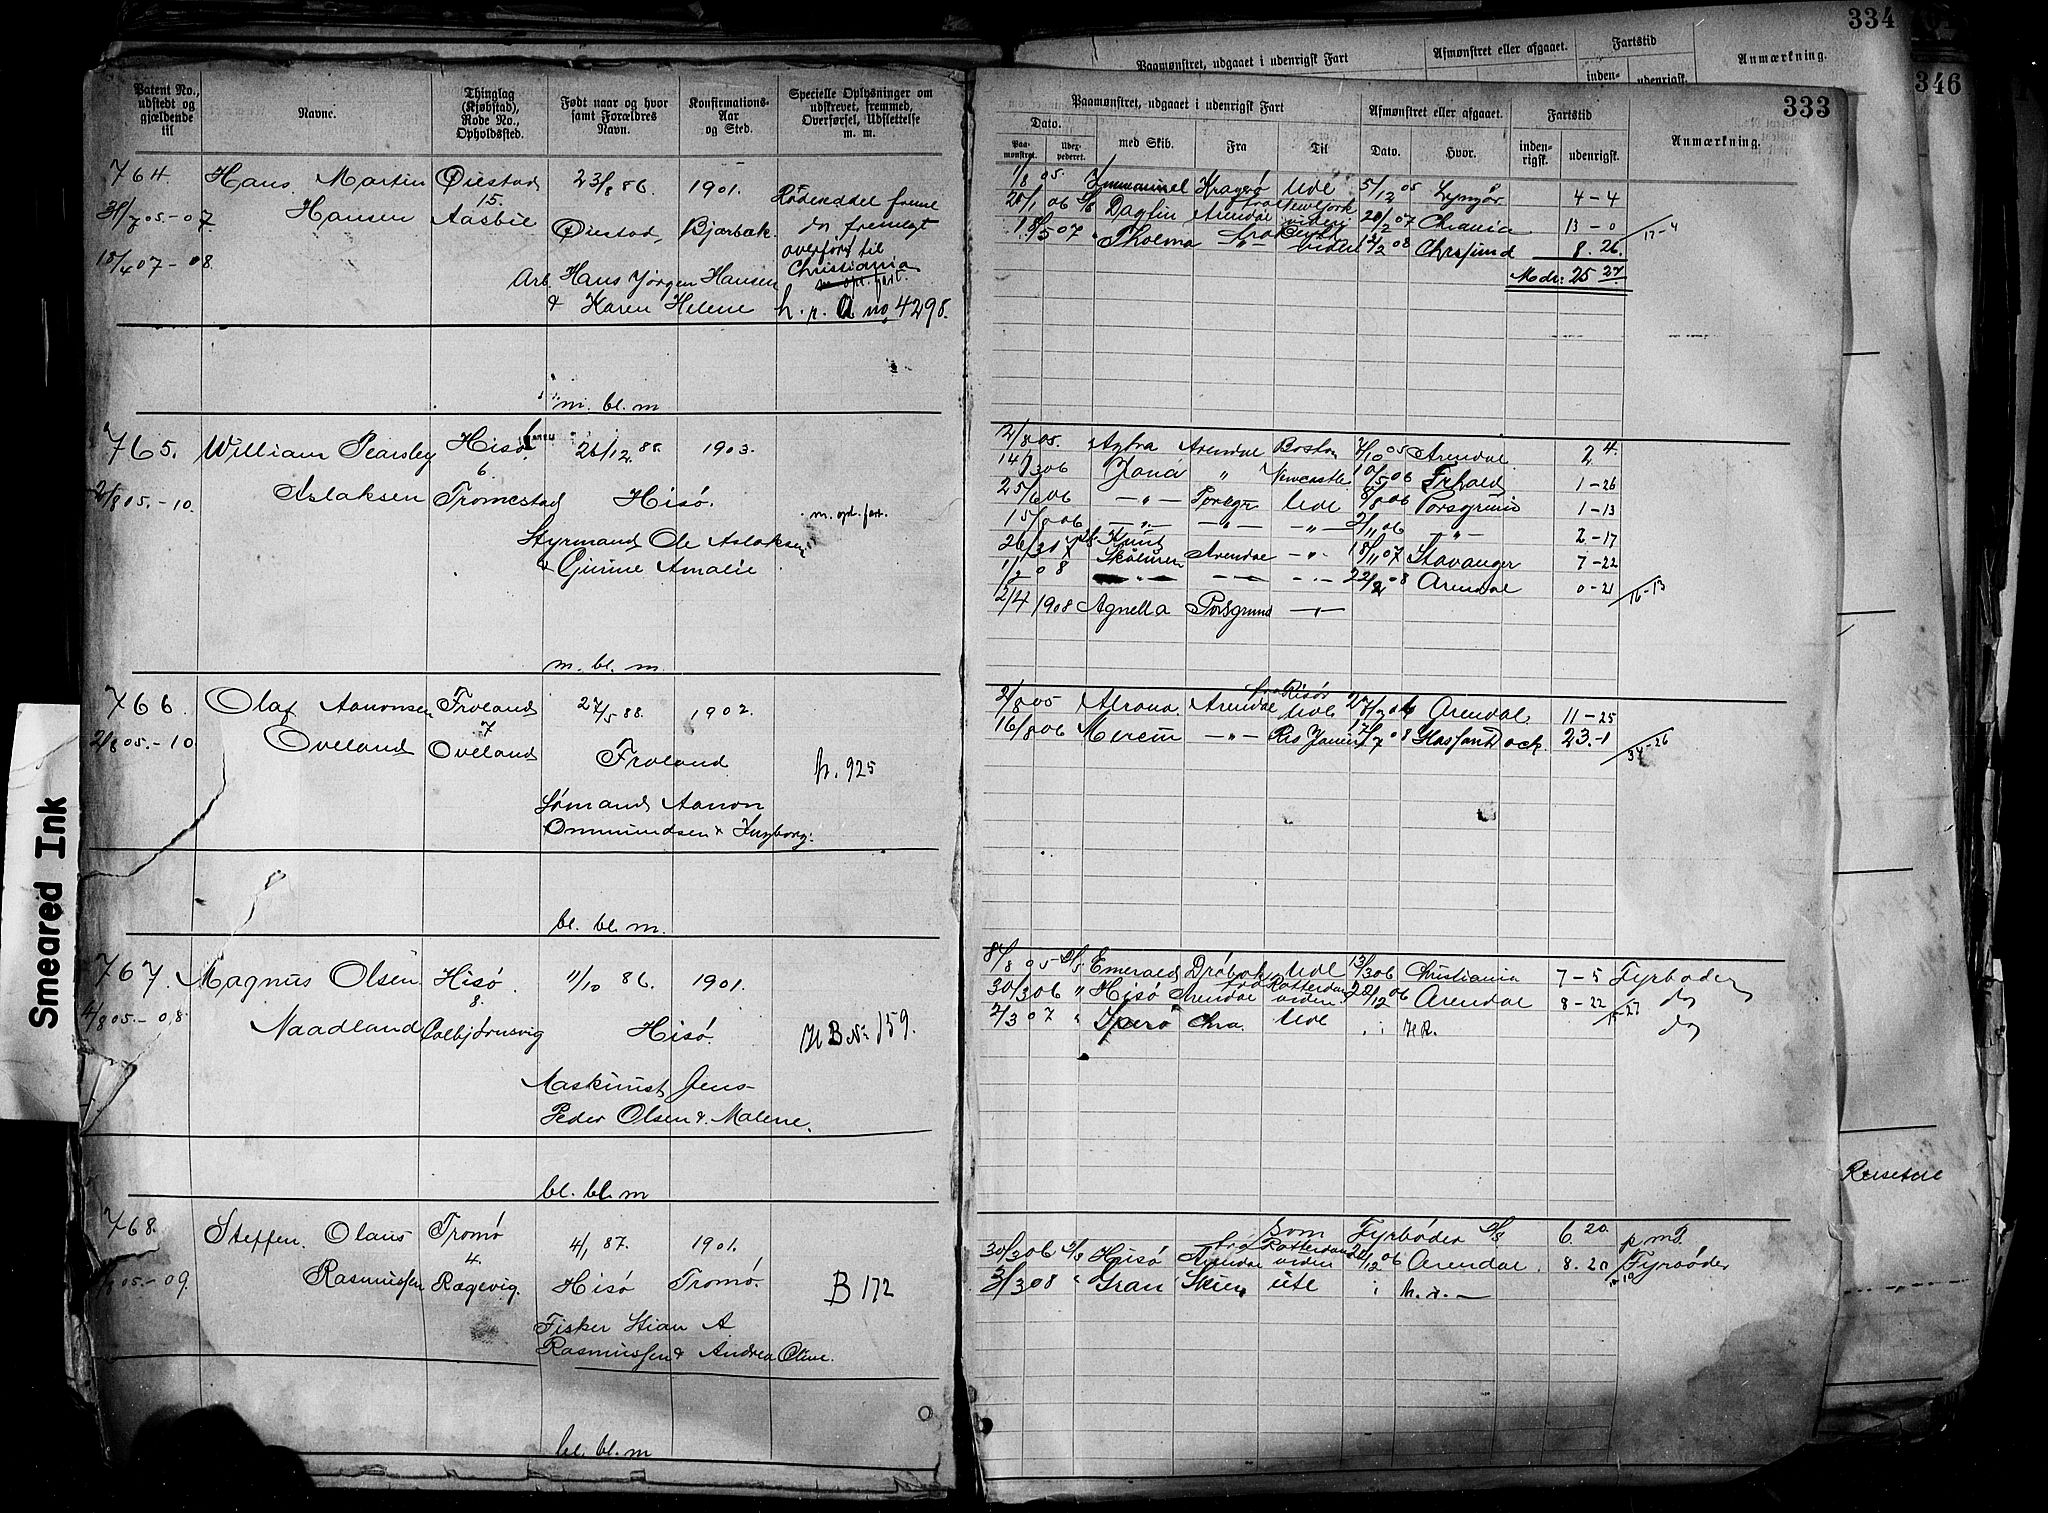 334
346
333
Patent No., udstedt og gjældende til
Navne.
Thinglag (Kjøbstad), Rode No., Opholdssted.
Født naar og hvor samt Forældres Navn.
Konfirmations-Aar og Sted.
Specielle Oplysninger om udskrevet, fremmed, Overførsel, Udslettelse m. m.
Paamønstret, udgaaet i udenrigsk Fart
Afmønstret eller afgaaet.
Fartstid
Anmærkning.
Dato.
Paamønstret.
med Skib.
Fra
Til
Dato.
Hvor.
indenrigsk.
udenrigsk.
764. Hans Martin Øiestad 23/8 86. 1901.
31/7 05.-07 Hansen 15. Aasbie Øiestad, Bjorbæk.
18/4 07-08.
overført til
Christiania
Arb. Hans Jørgen Hansen
& Karen Helene h. p. A no 4298.
1/8 05. Immanuel Kragerø Ude 5/12 05 Lyngør 4-4
06 Dagfin Arendal 20/2 07 Chrania 13-0
18/5 07 Tholma 12/2 08 Chrsund 8.26.
17-4
Mdr: 25 27
m. bl. m
765. William Pearsley Hisø 26/12 88 1903.
6
2/8 05.-10. Aslaksen Tromestad Hisø.
m. opl. fart.
Styrmand Ole Aslaksen
& Gurine Amalie
12/8 05. Agtra Arendal Boston 7/10 05 Arendal. 2 4
14/3 06 Jona " Newcastle 10/5 06 1-26
25/6 06 -"- Porsgr Ude 8/8 06 Porsgrund 1-13
15/8 06 -"- -"- -"- 2/11 06 -"- 2-17
26/3 07 Knud Skaluren Arendal -"- 18/11 07 Stavanger 7-22
1/2 08 -"- -"- -"- 22/2 08 Arendal 0-21
16-13
2/4 1908 Agnella Porsgrund -"-
m. bl. m.
766. Olaf Aanonsen Froland 27/5 88. 1902.
7
2/8 05.-10 Oveland Oveland Froland h. 925
Sømand Aanon
Ommundsen & Ingborg.
2/8 05 Alrona. Arendal fra Risør Ude 06 Arendal. 11-25
16/8 06 Mercur -"- 17/7 08 23.-1
34-26
bl. bl. m.
767. Magnus Olsen Hisø 11/10 86. 1901.
8.
4/8 05.-08 Naadland Colbjørnsvig Hisø. H B No 159.
Maskinist Jens
Peder Olsen & Malene.
05 Emerald Drøbak Ude 13/3 06 Christiania 7-5 Fyrbøder
30/3 06 " Hisø Arendal fra Rotterdam viden 12 06 Arendal 8-22 do
15-27
2/3 07 " Spero Chra. Ude do
bl. bl. m
768. Steffen Olaus Tromø 4/1 87. 1901.
4.
05.-09. Rasmussen Ragevig. Hisø Tromø. B 172
Fisker Stian A
Rasmussen & Andrea Oline.
Som Fyrbøder 6.20 p md.
30/3 06 Hisø Arendal fra Rotterdam viden 12 06 Arendal. 8.20 Fyrbøder
3/3 08 " Gran Skien ute
bl. bl. m
Smeared Ink